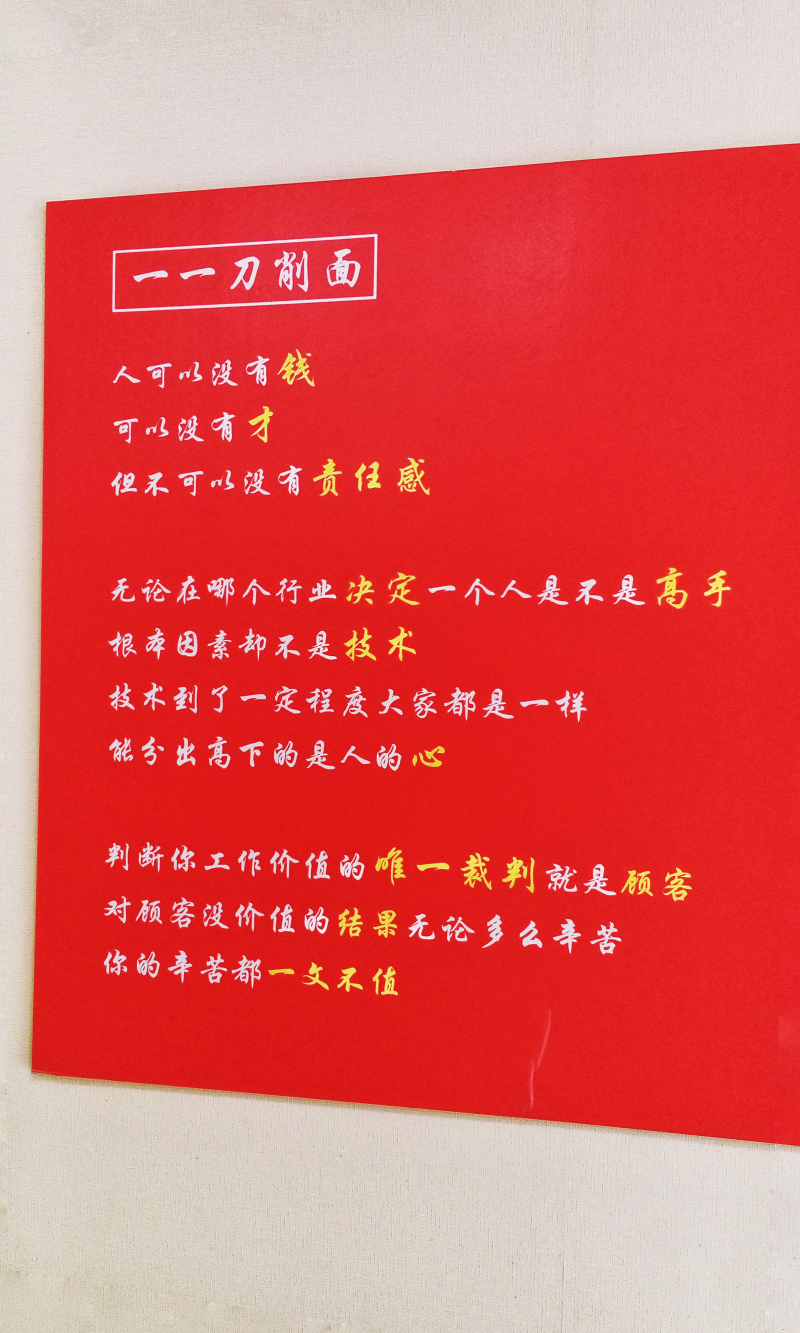 一一刀削面
人可以没有钱
可以没有才
但不可以没有责任感
无论在哪个行业决定一个人是不是高手
根本因素却不是技术
技术到了一定程度大家都是一样
能分出高下的是人的心
判断你工作价值的唯一裁判就是顾客
对顾客没价值的结果无论多么辛苦
你的辛苦都一文不值